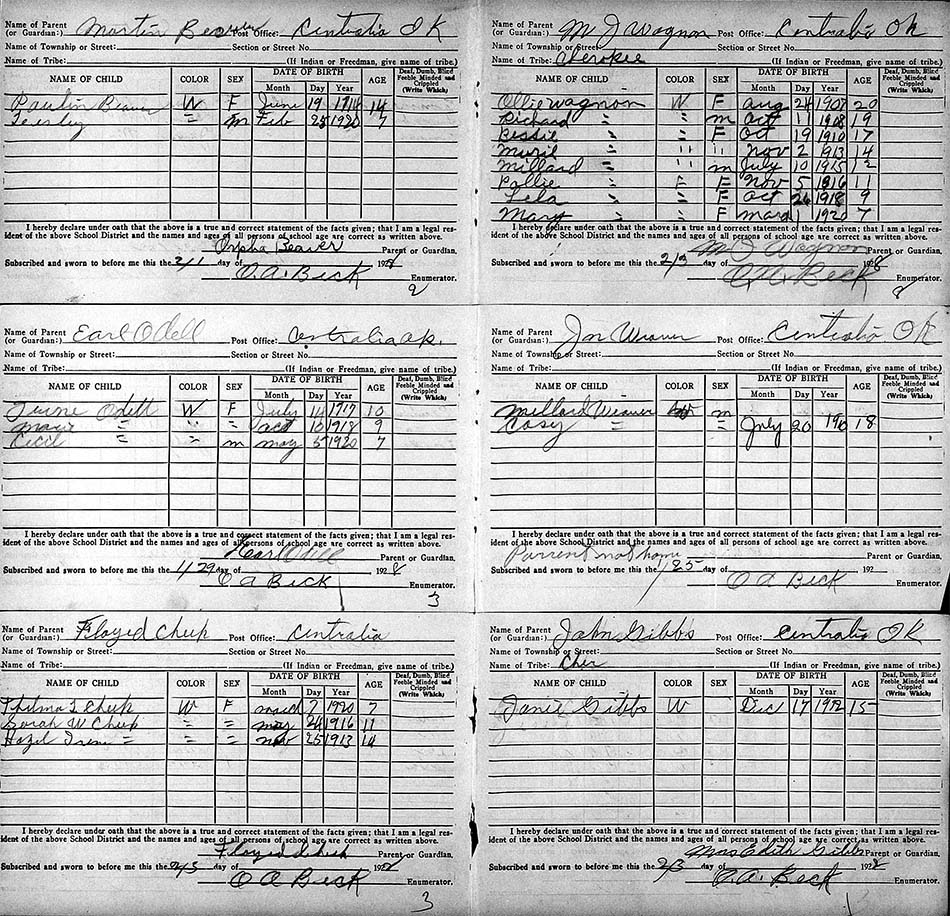 Name of Parent (or Guardian:) Martin Beaver Post Office: Centralia OK
Name of Township or Street: Section or Street No.
Name of Tribe: (If Indian or Freedman, give name of tribe.)
NAME OF CHILD COLOR SEX DATE OF BIRTH Month Day Year AGE Deaf, Dumb, Blind Feeble Minded and Crippled (Write Which)
Paulin Beaver W F June 19 1914 14
" m Feb 25 1920 7
I hereby declare under oath that the above is a true and correct statement of the facts given; that I am a legal res-
ident of the above School District and the names and ages of all persons of school age are correct as written above.
Omaha Beaver Parent or Guardian,
Subscribed and sworn to before me this the 2/1 day of 192
O. A. Beck Enumerator.
2
Name of Parent (or Guardian:) M J Wagnon Post Office: Centralia Ok
Name of Township or Street: Section or Street No.
Name of Tribe: Cherokee (If Indian or Freedman, give name of tribe.)
NAME OF CHILD COLOR SEX DATE OF BIRTH Month Day Year AGE Deaf, Dumb, Blind Feeble Minded and Crippled (Write Which)
Ollie Wagnon W F Aug 24 1907 20
Richard " " m Oct 11 1908 19
Bessie " " F Oct 19 1910 17
Muril " " " Nov 2 1913 14
Millard " " m July 10 1915 12
Pollie " F F Nov 5 1916 11
Lela " " F Oct 26 1918 9
Mary " " F March 1 1920 7
I hereby declare under oath that the above is a true and correct statement of the facts given; that I am a legal res-
ident of the above School District and the names and ages of all persons of school age are correct as written above.
M J Wagnon Parent or Guardian,
Subscribed and sworn to before me this the 2/3 day of 1928
O. A. Beck Enumerator.
8
Name of Parent (or Guardian:) Earl Odell Post Office: Centralia Ok.
Name of Township or Street: Section or Street No.
Name of Tribe: (If Indian or Freedman, give name of tribe.)
NAME OF CHILD COLOR SEX DATE OF BIRTH Month Day Year AGE Deaf, Dumb, Blind Feeble Minded and Crippled (Write Which)
Odell W F July 14 1917 10
" " " Oct 10 1918 9
Cecil " " m May 5 1920 7
I hereby declare under oath that the above is a true and correct statement of the facts given; that I am a legal res-
ident of the above School District and the names and ages of all persons of school age are correct as written above.
Earl Odell Parent or Guardian,
Subscribed and sworn to before me this the 1/29 day of 1928
O A Beck Enumerator.
3
Name of Parent (or Guardian:) Weaver Post Office: Centralia OK
Name of Township or Street: Section or Street No.
Name of Tribe: (If Indian or Freedman, give name of tribe.)
NAME OF CHILD COLOR SEX DATE OF BIRTH Month Day Year AGE Deaf, Dumb, Blind Feeble Minded and Crippled (Write Which)
Millard Weaver W m
Cosy " " July 20 1910 18
I hereby declare under oath that the above is a true and correct statement of the facts given; that I am a legal res-
ident of the above School District and the names and ages of all persons of school age are correct as written above.
Parrent not home Parent or Guardian,
Subscribed and sworn to before me this the 1/25 day of 192
O A Beck Enumerator.
Name of Parent (or Guardian:) Floyed Cheek Post Office: Centralia
Name of Township or Street: Section or Street No.
Name of Tribe: (If Indian or Freedman, give name of tribe.)
NAME OF CHILD COLOR SEX DATE OF BIRTH Month Day Year AGE Deaf, Dumb, Blind Feeble Minded and Crippled (Write Which)
Thelma L Cheek W F March 7 1920 7
Sarah W Cheek " " May 24 1916 11
Hazel Irene " " " Nov 25 1913 14
I hereby declare under oath that the above is a true and correct statement of the facts given; that I am a legal res-
ident of the above School District and the names and ages of all persons of school age are correct as written above.
Floyed Cheek Parent or Guardian,
Subscribed and sworn to before me this the 2/3 day of 192
O A Beck Enumerator.
3
Name of Parent (or Guardian:) John Gibbs Post Office: Centralia OK
Name of Township or Street: Section or Street No.
Name of Tribe: Cher (If Indian or Freedman, give name of tribe.)
NAME OF CHILD COLOR SEX DATE OF BIRTH Month Day Year AGE Deaf, Dumb, Blind Feeble Minded and Crippled (Write Which)
Janie Gibbs W Dec 17 1912 15
I hereby declare under oath that the above is a true and correct statement of the facts given; that I am a legal res-
ident of the above School District and the names and ages of all persons of school age are correct as written above.
Mrs Edith Gibbs Parent or Guardian,
Subscribed and sworn to before me this the 2/3 day of 192
O. A. Beck Enumerator.
1